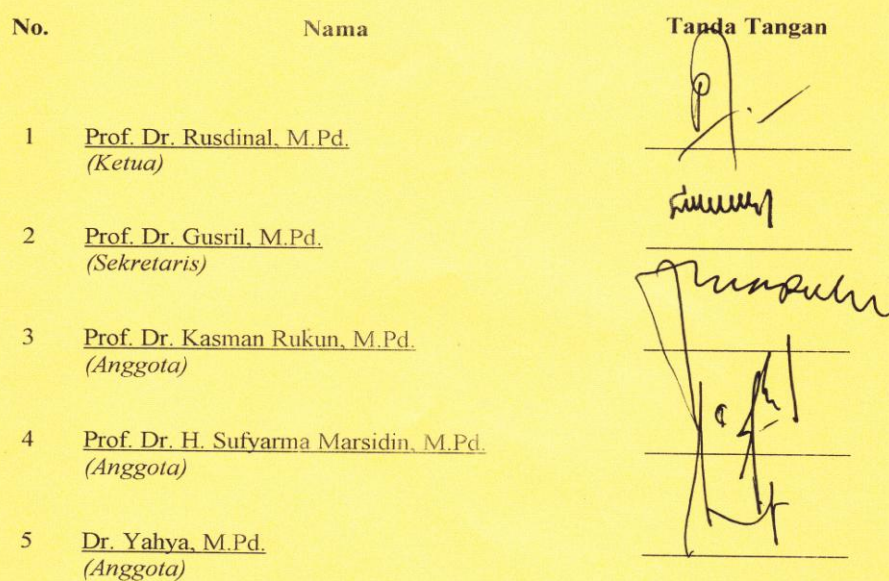 No. Nama Tanda Tangan
1 Prof. Dr. Rusdinal, M.Pd.
(Ketua)
2 Prof. Dr. Gusril, M.Pd.
(Sekretaris)
3 Prof. Dr. Kasman Rukun, M.Pd.
(Anggota)
4 Prof. Dr. H. Sufyarma Marsidin, M.Pd.
(Anggota)
5 Dr. Yahya, M.Pd.
(Anggota)